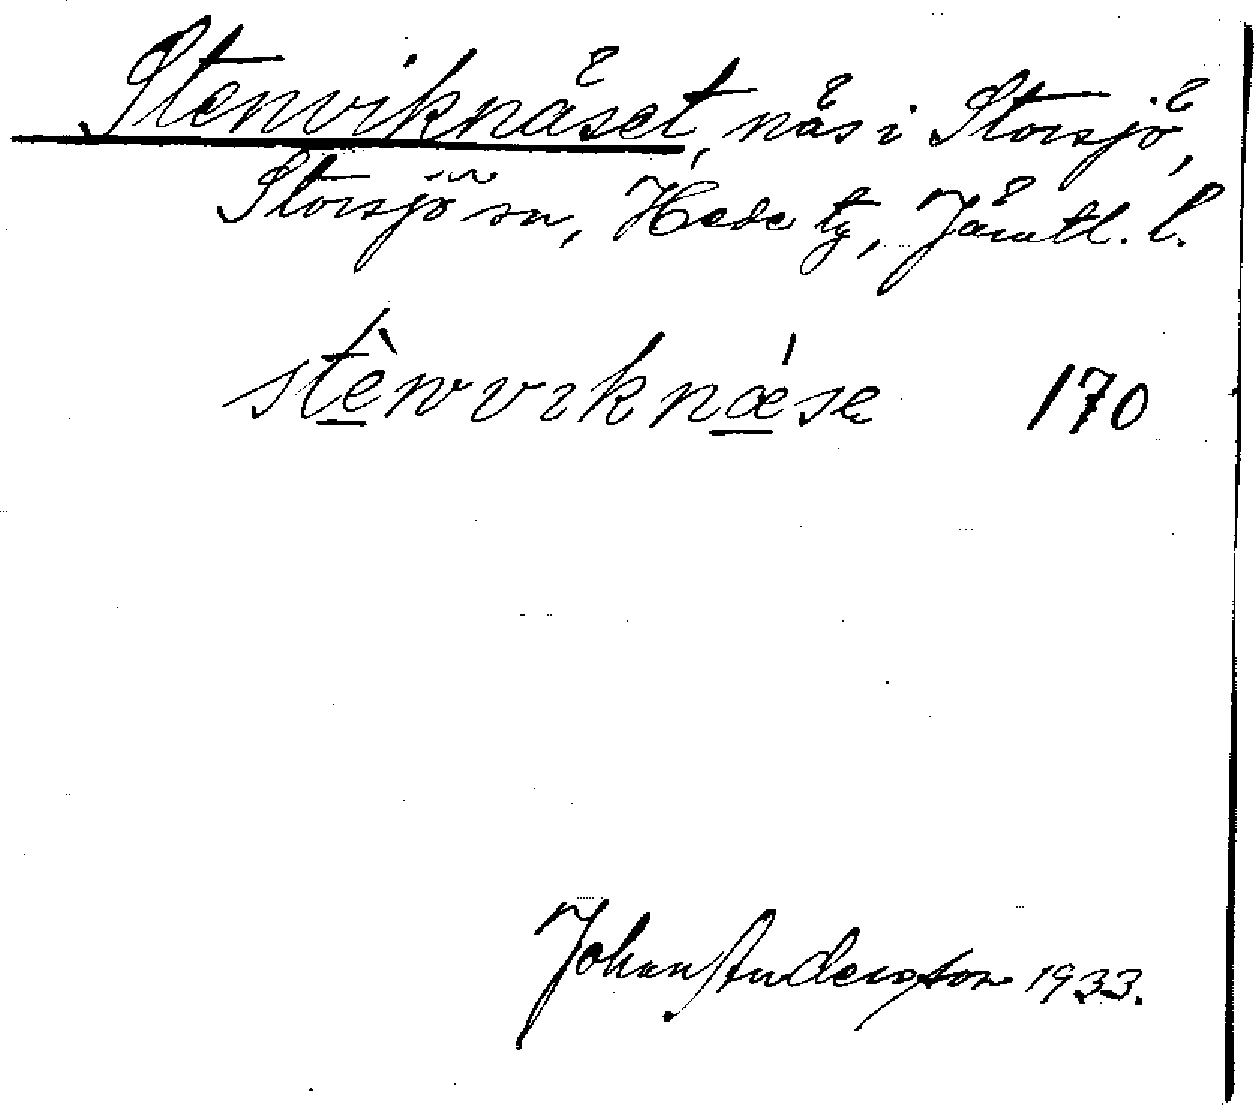 Stenviknäset, näs i Storsjö,
Storsjö sn, Hede tg, Jämtl. l.
stènvıknǽse 170
Johan Anderson 1933.